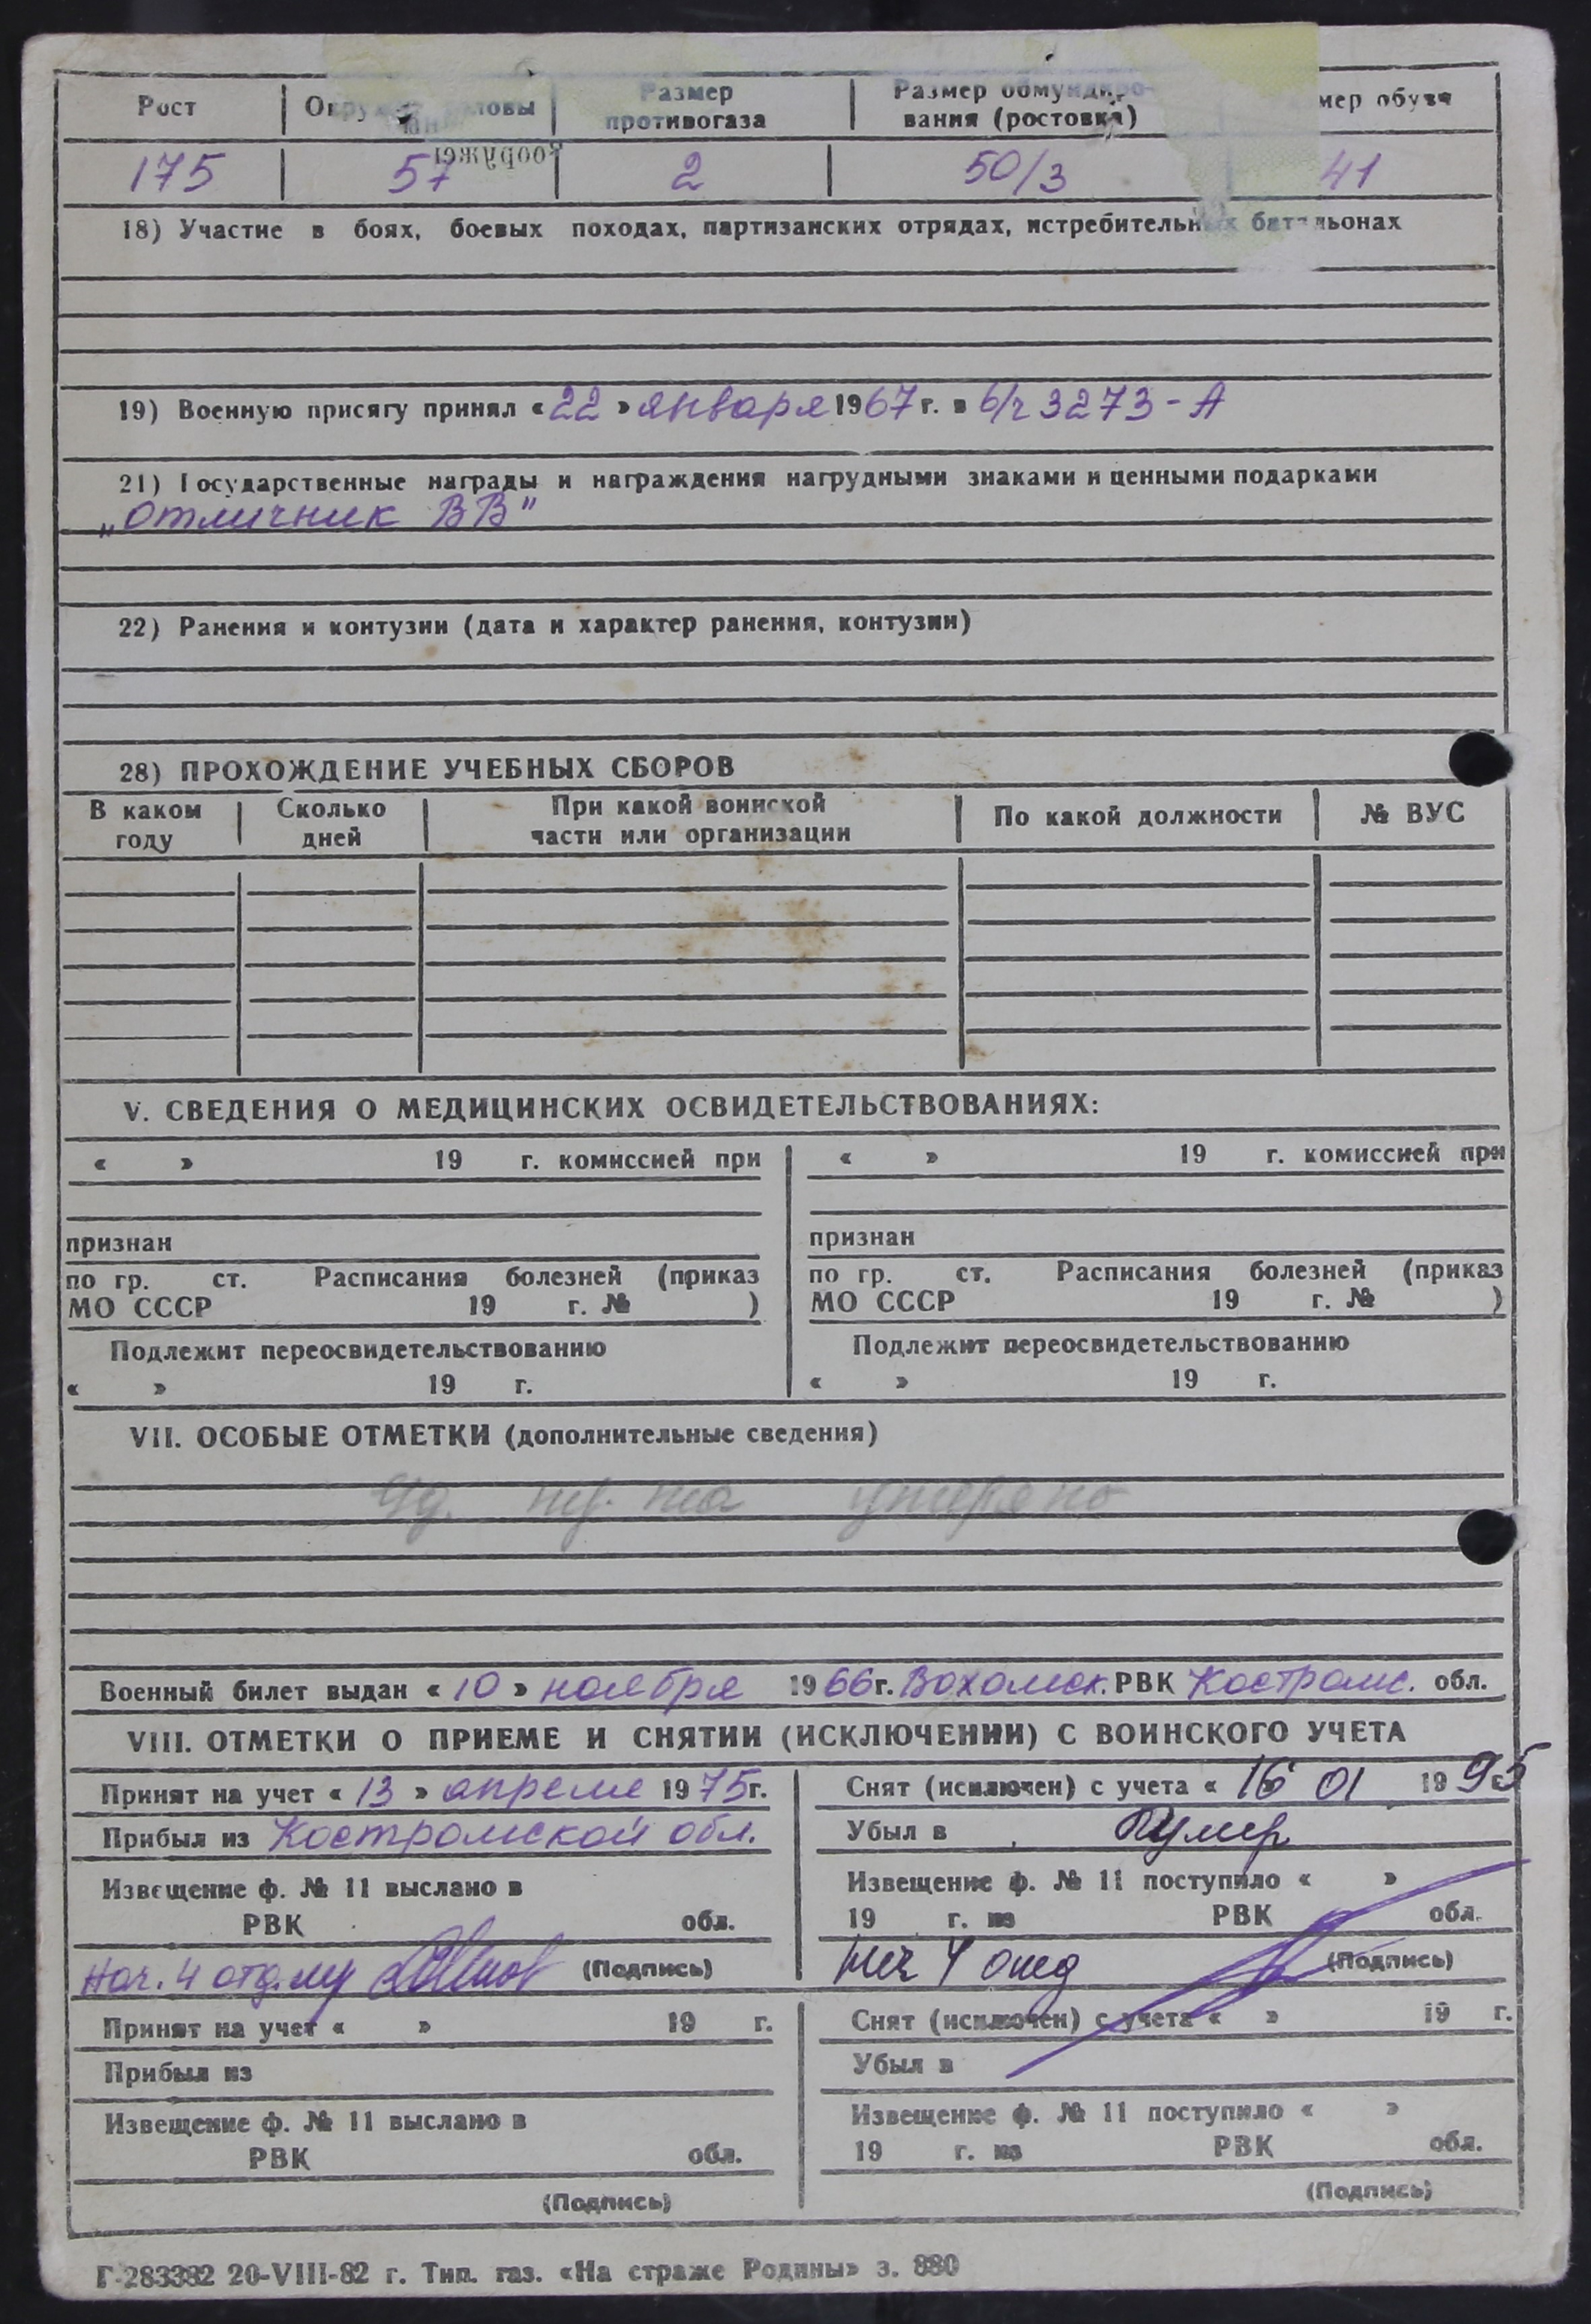 Рост Окруж головы Размер противогаза Размер обмундиро-вания (ростовка) мер обуви
175 57 2 50/3 41
18) Участие в боях, боевых походах, партизанских отрядах, истребительных батальонах
19) Военную присягу принял «22» января 1967 г. в в/ч 3273-А
21) Государственные награды и награждения нагрудными знаками и ценными подарками
„Отличник ВВ"
22) Ранения и контузии (дата и характер ранения, контузии)
28) ПРОХОЖДЕНИЕ УЧЕБНЫХ СБОРОВ
В каком году Сколько дней При какой воинской части или организации По какой должности № ВУС
V. СВЕДЕНИЯ О МЕДИЦИНСКИХ ОСВИДЕТЕЛЬСТВОВАНИЯХ:
« » 19 г. комиссией при « » 19 г. комиссией при
признан признан
по гр. ст. Расписания болезней (приказ по гр. ст. Расписания болезней (приказ
МО СССР 19 г. № ) МО СССР 19 г. № )
Подлежит переосвидетельствованию Подлежит переосвидетельствованию
« » 19 г. « » 19 г.
VII. ОСОБЫЕ ОТМЕТКИ (дополнительные сведения)
утеряно
Военный билет выдан «10» ноября 1966 г. Вохомск. РВК Костромс. обл.
VIII. ОТМЕТКИ О ПРИЕМЕ И СНЯТИИ (ИСКЛЮЧЕНИИ) С ВОИНСКОГО УЧЕТА
Принят на учет «13» апреля 1975 г. Снят (исключен) с учета «16 01 1995
Прибыл из Костромской обл. Убыл в Умер
Извещение ф. № 11 выслано в Извещение ф. № 11 поступило « »
РВК обл. 19 г. из РВК обл.
Нач. 4 отд. (Подпись) Нач 4 отд (Подпись)
Принят на учет « » 19 г. Снят (исключен) с учета « » 19 г.
Прибыл из Убыл в
Извещение ф. № 11 выслано в Извещение ф. № 11 поступило « »
РВК обл. 19 г. из РВК обл.
(Подпись) (Подпись)
Г-283382 20-VIII-82 г. Тип. газ. «На страже Родины» з. 880